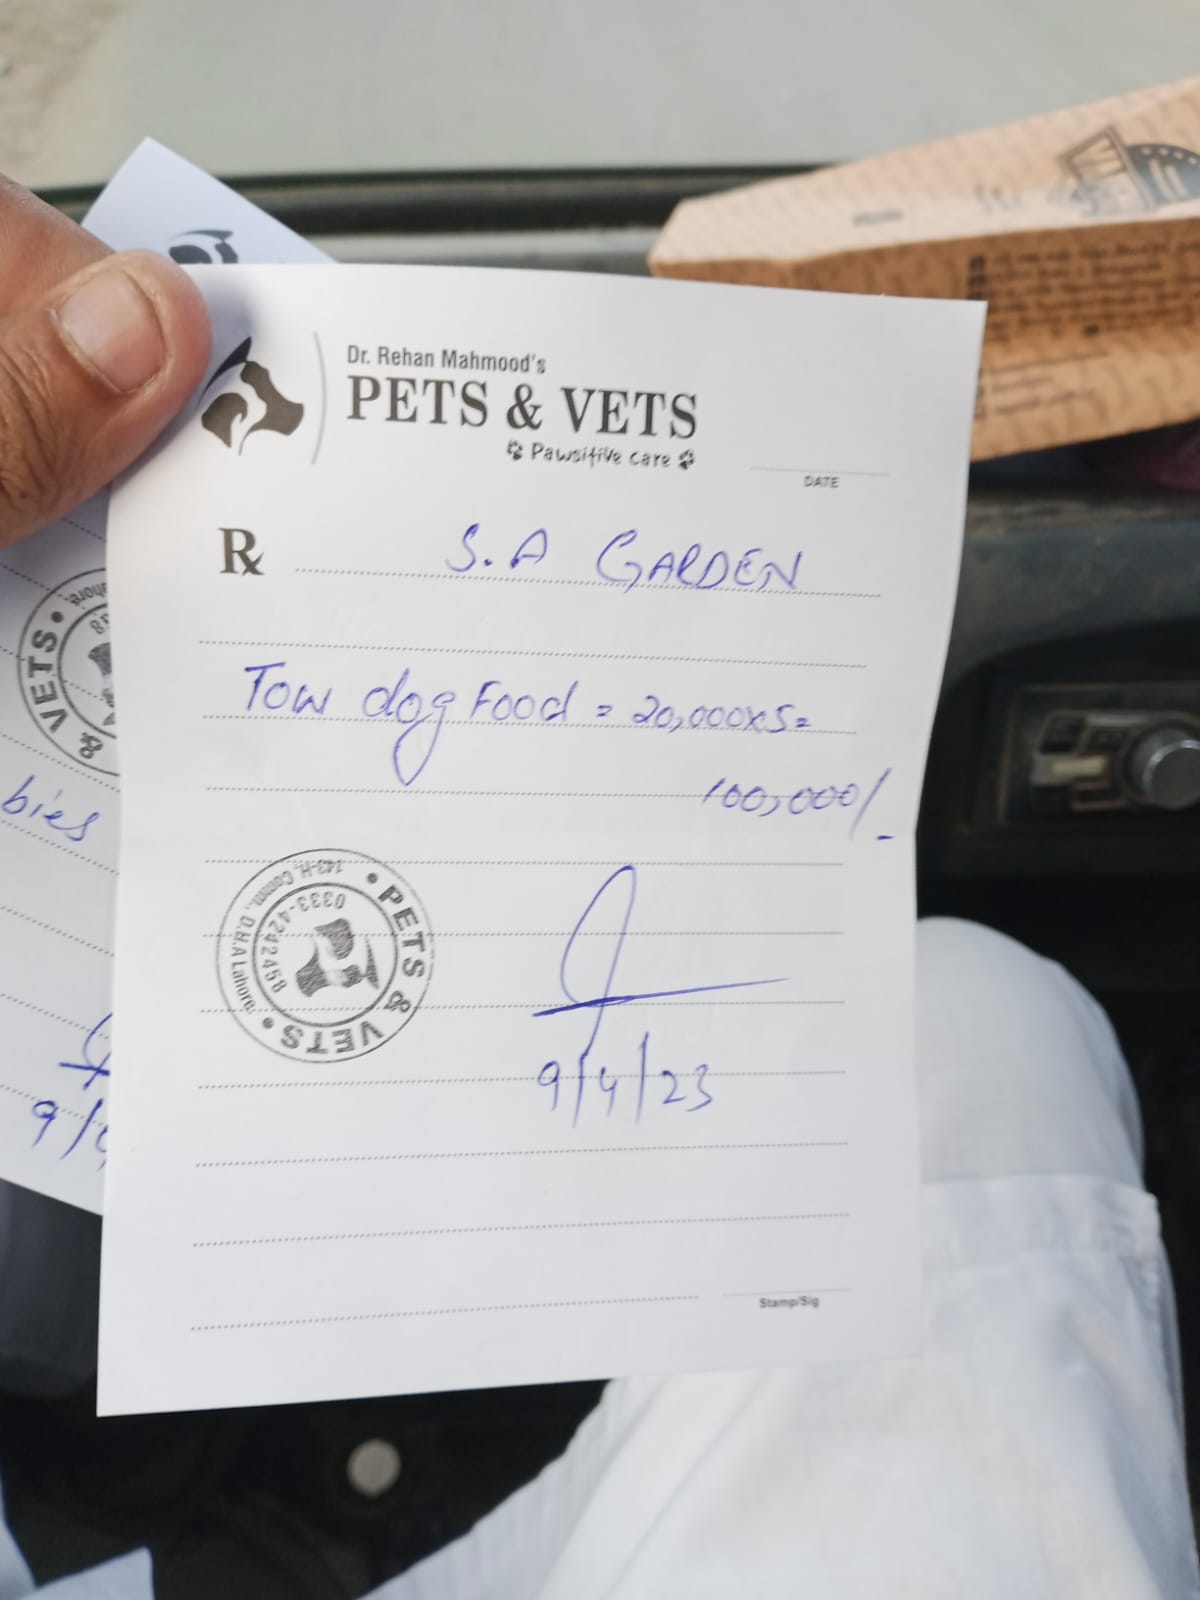 Dr. Rehan Mahmood's
PETS & VETS
Pawsitive care
DATE
Rx S. A GARDEN
Tow dog Food = 20,000x5=
100,000/-
PETS & VETS
143-H, Comm., D.H.A Lahore.
0333-4242458
9/4/23
Stamp/Sig
& VETS
bies
9/